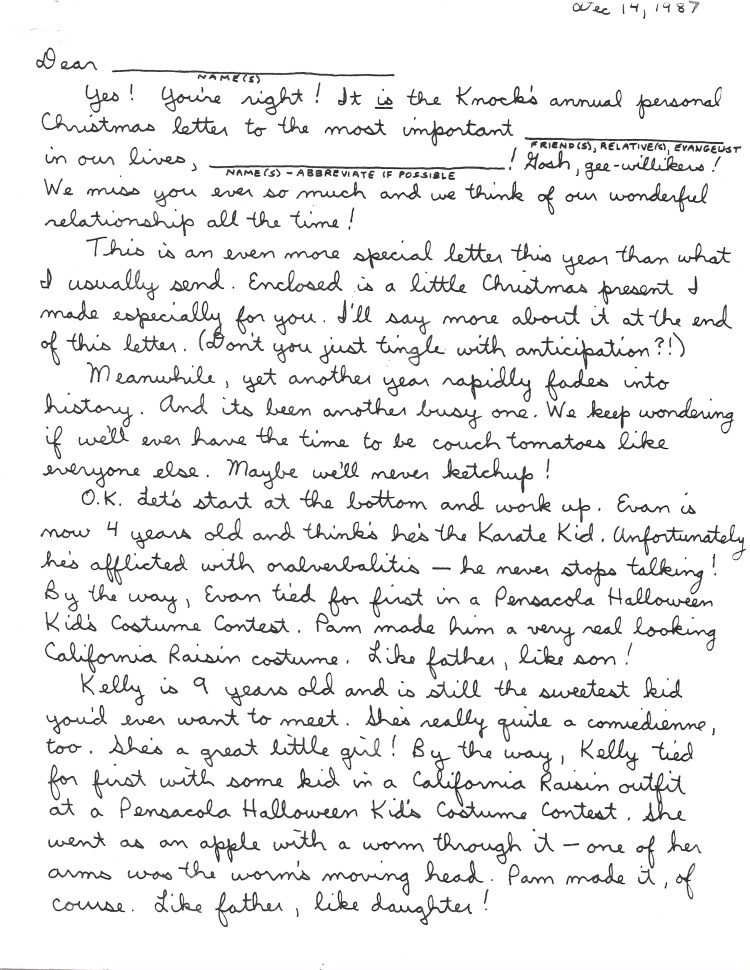 Dec 14, 1987
Dear ____________________
NAME(S)
Yes! You're right! It is the Knock's annual personal
Christmas letter to the most important ____________________
FRIEND(S), RELATIVE(S), EVANGELIST
in our lives, ____________________! Gosh, gee-willikers!
NAME(S) - ABBREVIATE IF POSSIBLE
We miss you ever so much and we think of our wonderful
relationship all the time!
This is an even more special letter this year than what
I usually send. Enclosed is a little Christmas present I
made especially for you. I'll say more about it at the end
of this letter. (Don't you just tingle with anticipation?!)
Meanwhile, yet another year rapidly fades into
history. And its been another busy one. We keep wondering
if we'll ever have the time to be couch tomatoes like
everyone else. Maybe we'll never ketchup!
O.K. Let's start at the bottom and work up. Evan is
now 4 years old and think's he's the Karate Kid. Unfortunately
he's afflicted with oralverbalitis — he never stops talking!
By the way, Evan tied for first in a Pensacola Halloween
Kid's Costume Contest. Pam made him a very real looking
California Raisin costume. Like father, like son!
Kelly is 9 years old and is still the sweetest kid
you'd ever want to meet. She's really quite a comedienne,
too. She's a great little girl! By the way, Kelly tied
for first with some kid in a California Raisin outfit
at a Pensacola Halloween Kid's Costume Contest. She
went as an apple with a worm through it — one of her
arms was the worm's moving head. Pam made it, of
course. Like father, like daughter!